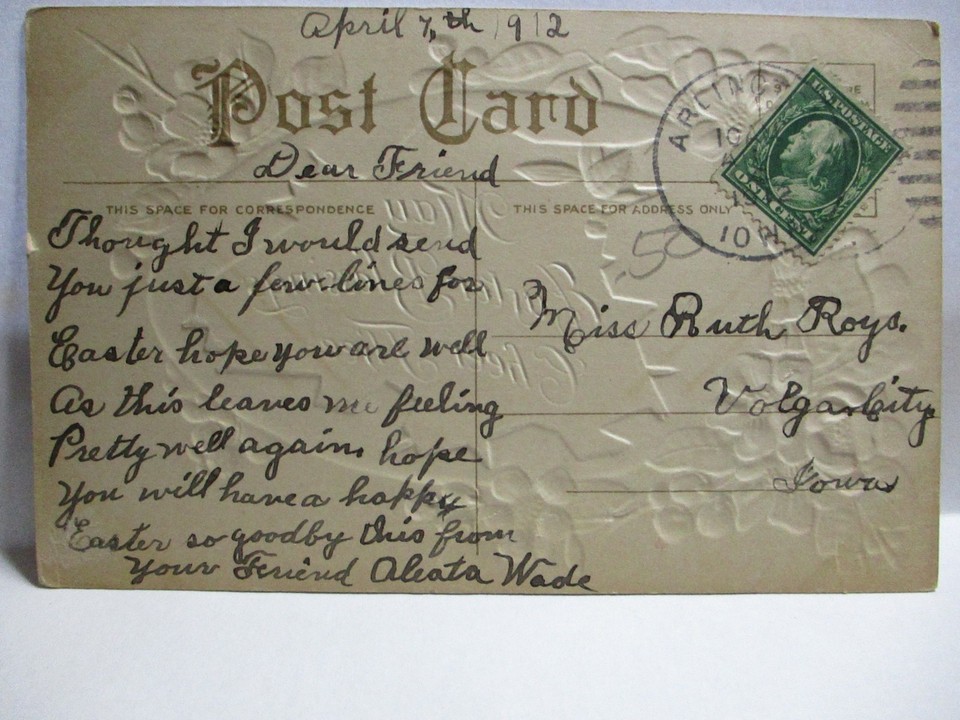 April 7,th 1912
Post Card
Dear Friend
THIS SPACE FOR CORRESPONDENCE
THIS SPACE FOR ADDRESS ONLY
Thought I would send
You just a few lines for
Easter hope you are well
As this leaves me feeling
Pretty well again, hope
You will have a happy
Easter so goodby this from
Your Friend Aleata Wade
Miss Ruth Roys.
Volga City
Iowa
.50
ARLING
10
U.S. POSTAGE
ONE CENT
May